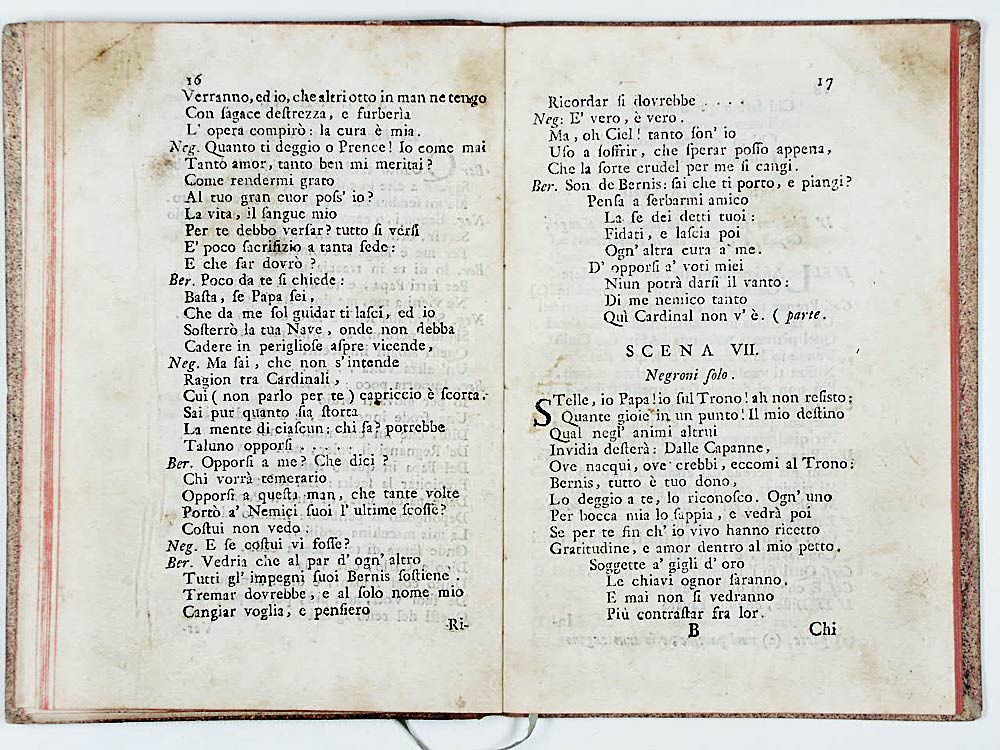 16
Verranno, ed io, che altri otto in man ne tengo
Con sagace destrezza, e furberìa
L' opera compirò: la cura è mia.
Neg. Quanto ti deggio o Prence! Io come mai
Tanto amor, tanto ben mi meritai?
Come rendermi grato
Al tuo gran cuor poss' io?
La vita, il sangue mio
Per te debbo versar? tutto si versi
E' poco sacrifizio a tanta sede:
E che far dovrò?
Ber. Poco da te si chiede:
Basta, se Papa sei,
Che da me sol guidar ti lasci, ed io
Sosterrò la tua Nave, onde non debba
Cadere in perigliose aspre vicende,
Neg. Ma sai, che non s'intende
Ragion tra Cardinali,
Cui ( non parlo per te ) capriccio è scorta.
Sai pur quanto sia storta
La mente di ciascun: chi sa? potrebbe
Taluno opporsi . . . . .
Ber. Opporsi a me? Che dici?
Chi vorrà temerario
Opporsi a questa man, che tante volte
Portò a' Nemici suoi l'ultime scosse?
Costui non vedo.
Neg. E se costui vi fosse?
Ber. Vedria che al par d' ogn' altro
Tutti gl' impegni suoi Bernis sostiene.
Tremar dovrebbe, e al solo nome mio
Cangiar voglia, e pensiero
Ri-
17
Ricordar si dovrebbe . . . .
Neg: E' vero, è vero.
Ma, oh Ciel! tanto son' io
Uso a soffrir, che sperar posso appena,
Che la sorte crudel per me si cangi.
Ber. Son de Bernis: sai che ti porto, e piangi?
Pensa a serbarmi amico
La fe dei detti tuoi:
Fidati, e lascia poi
Ogn' altra cura a' me.
D' opporsi a' voti miei
Niun potrà darsi il vanto:
Di me nemico tanto
Quì Cardinal non v' è. ( parte.
SCENA VII.
Negroni solo.
STelle, io Papa! io sul Trono! ah non resisto;
Quante gioie in un punto! Il mio destino
Qual negl' animi altrui
Invidia desterà: Dalle Capanne,
Ove nacqui, ove crebbi, eccomi al Trono:
Bernis, tutto è tuo dono,
Lo deggio a te, lo riconosco. Ogn' uno
Per bocca mia lo sappia, e vedrà poi
Se per te fin ch' io vivo hanno ricetto
Gratitudine, e amor dentro al mio petto.
Soggette a' gigli d' oro
Le chiavi ognor saranno.
E mai non si vedranno
Più contrastar fra lor.
B
Chi